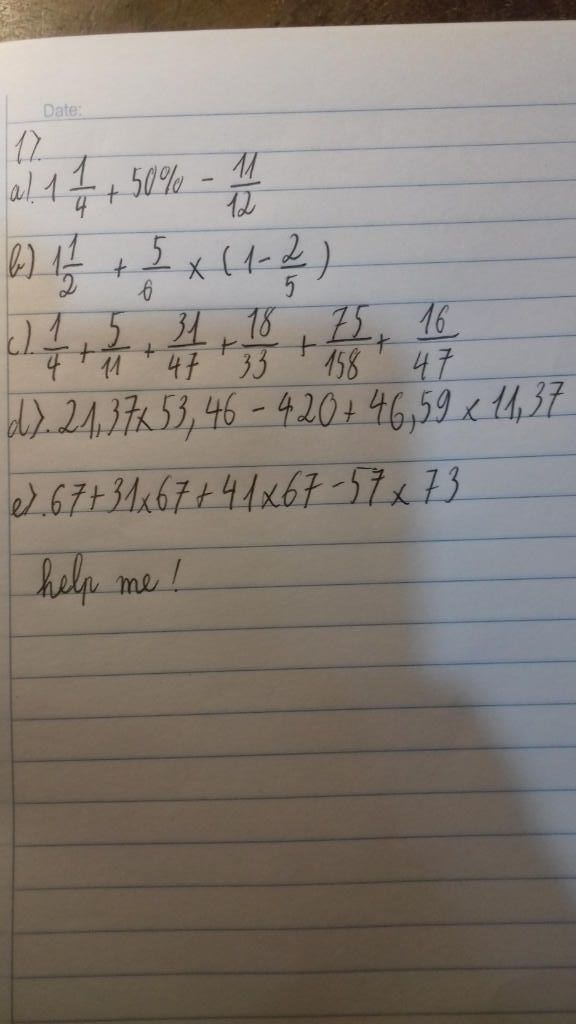 Date:
1).
a). 1 1/4 + 50% - 11/12
b) 1 1/2 + 5/6 x (1 - 2/5)
c). 1/4 + 5/11 + 31/47 + 18/33 + 75/158 + 16/47
d). 21,37 x 53,46 - 420 + 46,59 x 11,37
e). 67 + 31 x 67 + 41 x 67 - 57 x 73
help me!